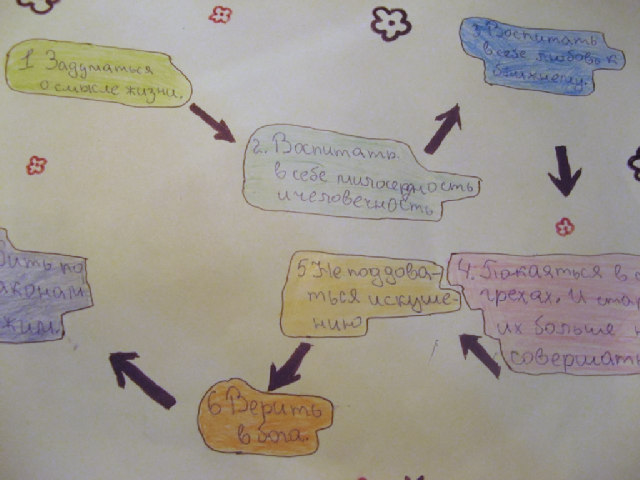 1 Задуматься
о смысле жизни.
2. Воспитать
в себе милосердность
и человечность
3. Воспитать
в себе любовь к
ближнему.
4. Покаяться в с
грехах. И ста
их больше н
совершать
5 Не поддова-
ться искуше-
нию
6 Верить
в бога.
ить по
аконам
жим.